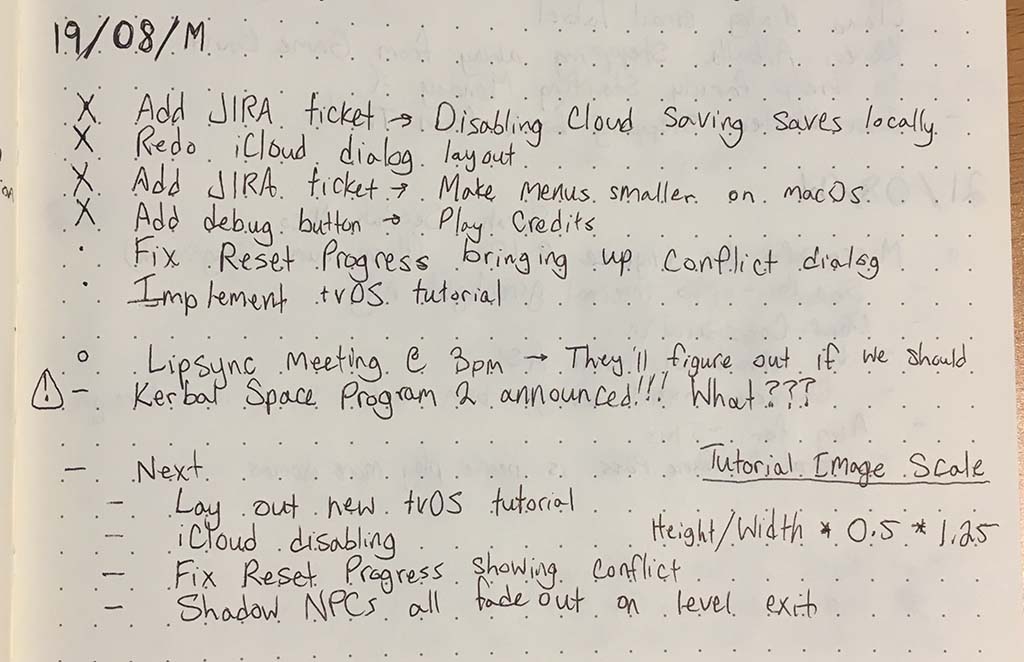 19/08/M
X Add JIRA ticket → Disabling Cloud Saving saves locally.
X Redo iCloud dialog layout
X Add JIRA ticket → Make menus smaller on macOS
X Add debug button → Play Credits
· Fix Reset Progress bringing up conflict dialog
· Implement tvOS tutorial
o Lipsync Meeting @ 3pm → They'll figure out if we should
⚠ – Kerbal Space Program 2 announced!!! What???
– Next
– Lay out new tvOS tutorial
– iCloud disabling
– Fix Reset Progress showing conflict
– Shadow NPCs all fade out on level exit
Tutorial Image Scale
Height/Width * 0.5 * 1.25